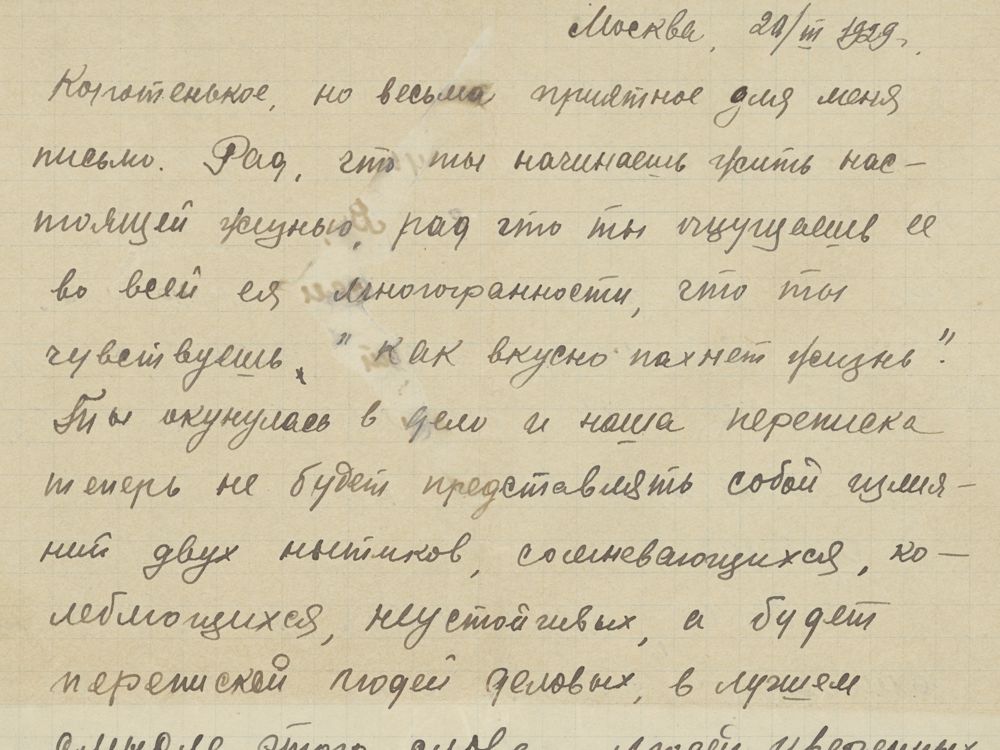 Москва, 21/III 1929г.
Коротенькое, но весьма приятное для меня
письмо. Рад, что ты начинаешь жить нас–
тоящей жизнью, рад что ты ощущаешь ее
во всей ея многогранности, что ты
чувствуешь, "как вкусно пахнет жизнь".
Ты окунулась в дело и наша переписка
теперь не будет представлять собой излия–
ний двух нытиков, сомневающихся, ко–
леблющихся, неустойчивых, а будет
перепиской людей деловых, в лучшем
смысле этого слова, людей уверенных